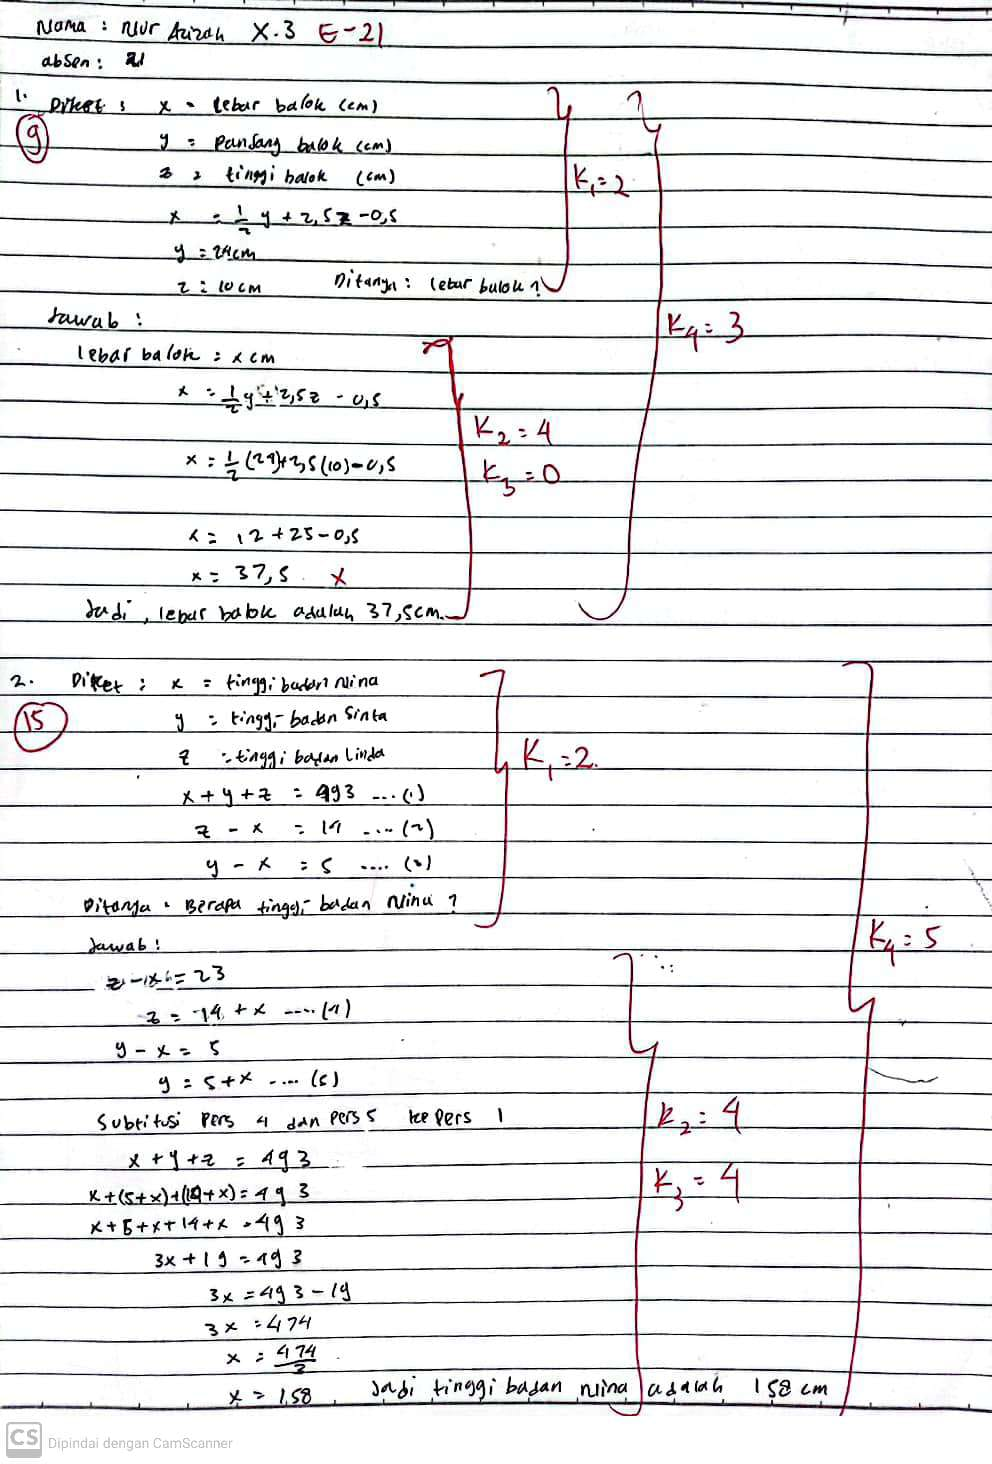 Nama : Nur Azizah X.3 E-21
absen : 21
1. Diket : x = lebar balok (cm)
9
y = panjang balok (cm)
z = tinggi balok (cm)
K1 = 2
x = 1/2 y + 2,5z - 0,5
y = 24cm
z = 10 cm Ditanya : lebar balok ?
Jawab :
K4 = 3
lebar balok = x cm
x = 1/2 y + 2,5z - 0,5
K2 = 4
x = 1/2 (24)+2,5(10)-0,5
K3 = 0
x = 12 + 25 - 0,5
x = 37,5 x
Jadi, lebar balok adalah 37,5cm.
2. Diket : x = tinggi badan Nina
15
y = tinggi badan Sinta
z = tinggi badan Linda
K1 = 2.
x + y + z = 493 ... (1)
z - x = 14 .... (2)
y - x = 5 .... (3)
Ditanya : Berapa tinggi badan Nina ?
K4 = 5
Jawab :
z - x = 23
z = 14 + x .... (4)
y - x = 5
y = 5 + x .... (5)
Subtitusi Pers 4 dan Pers 5 ke Pers 1
K2 = 4
x + y + z = 493
K3 = 4
x + (5+x)+(14+x) = 493
x + 5 + x + 14 + x = 493
3x + 19 = 493
3x = 493 - 19
3x = 474
x = 474/3
x = 158 Jadi tinggi badan Nina adalah 158 cm
CS Dipindai dengan CamScanner